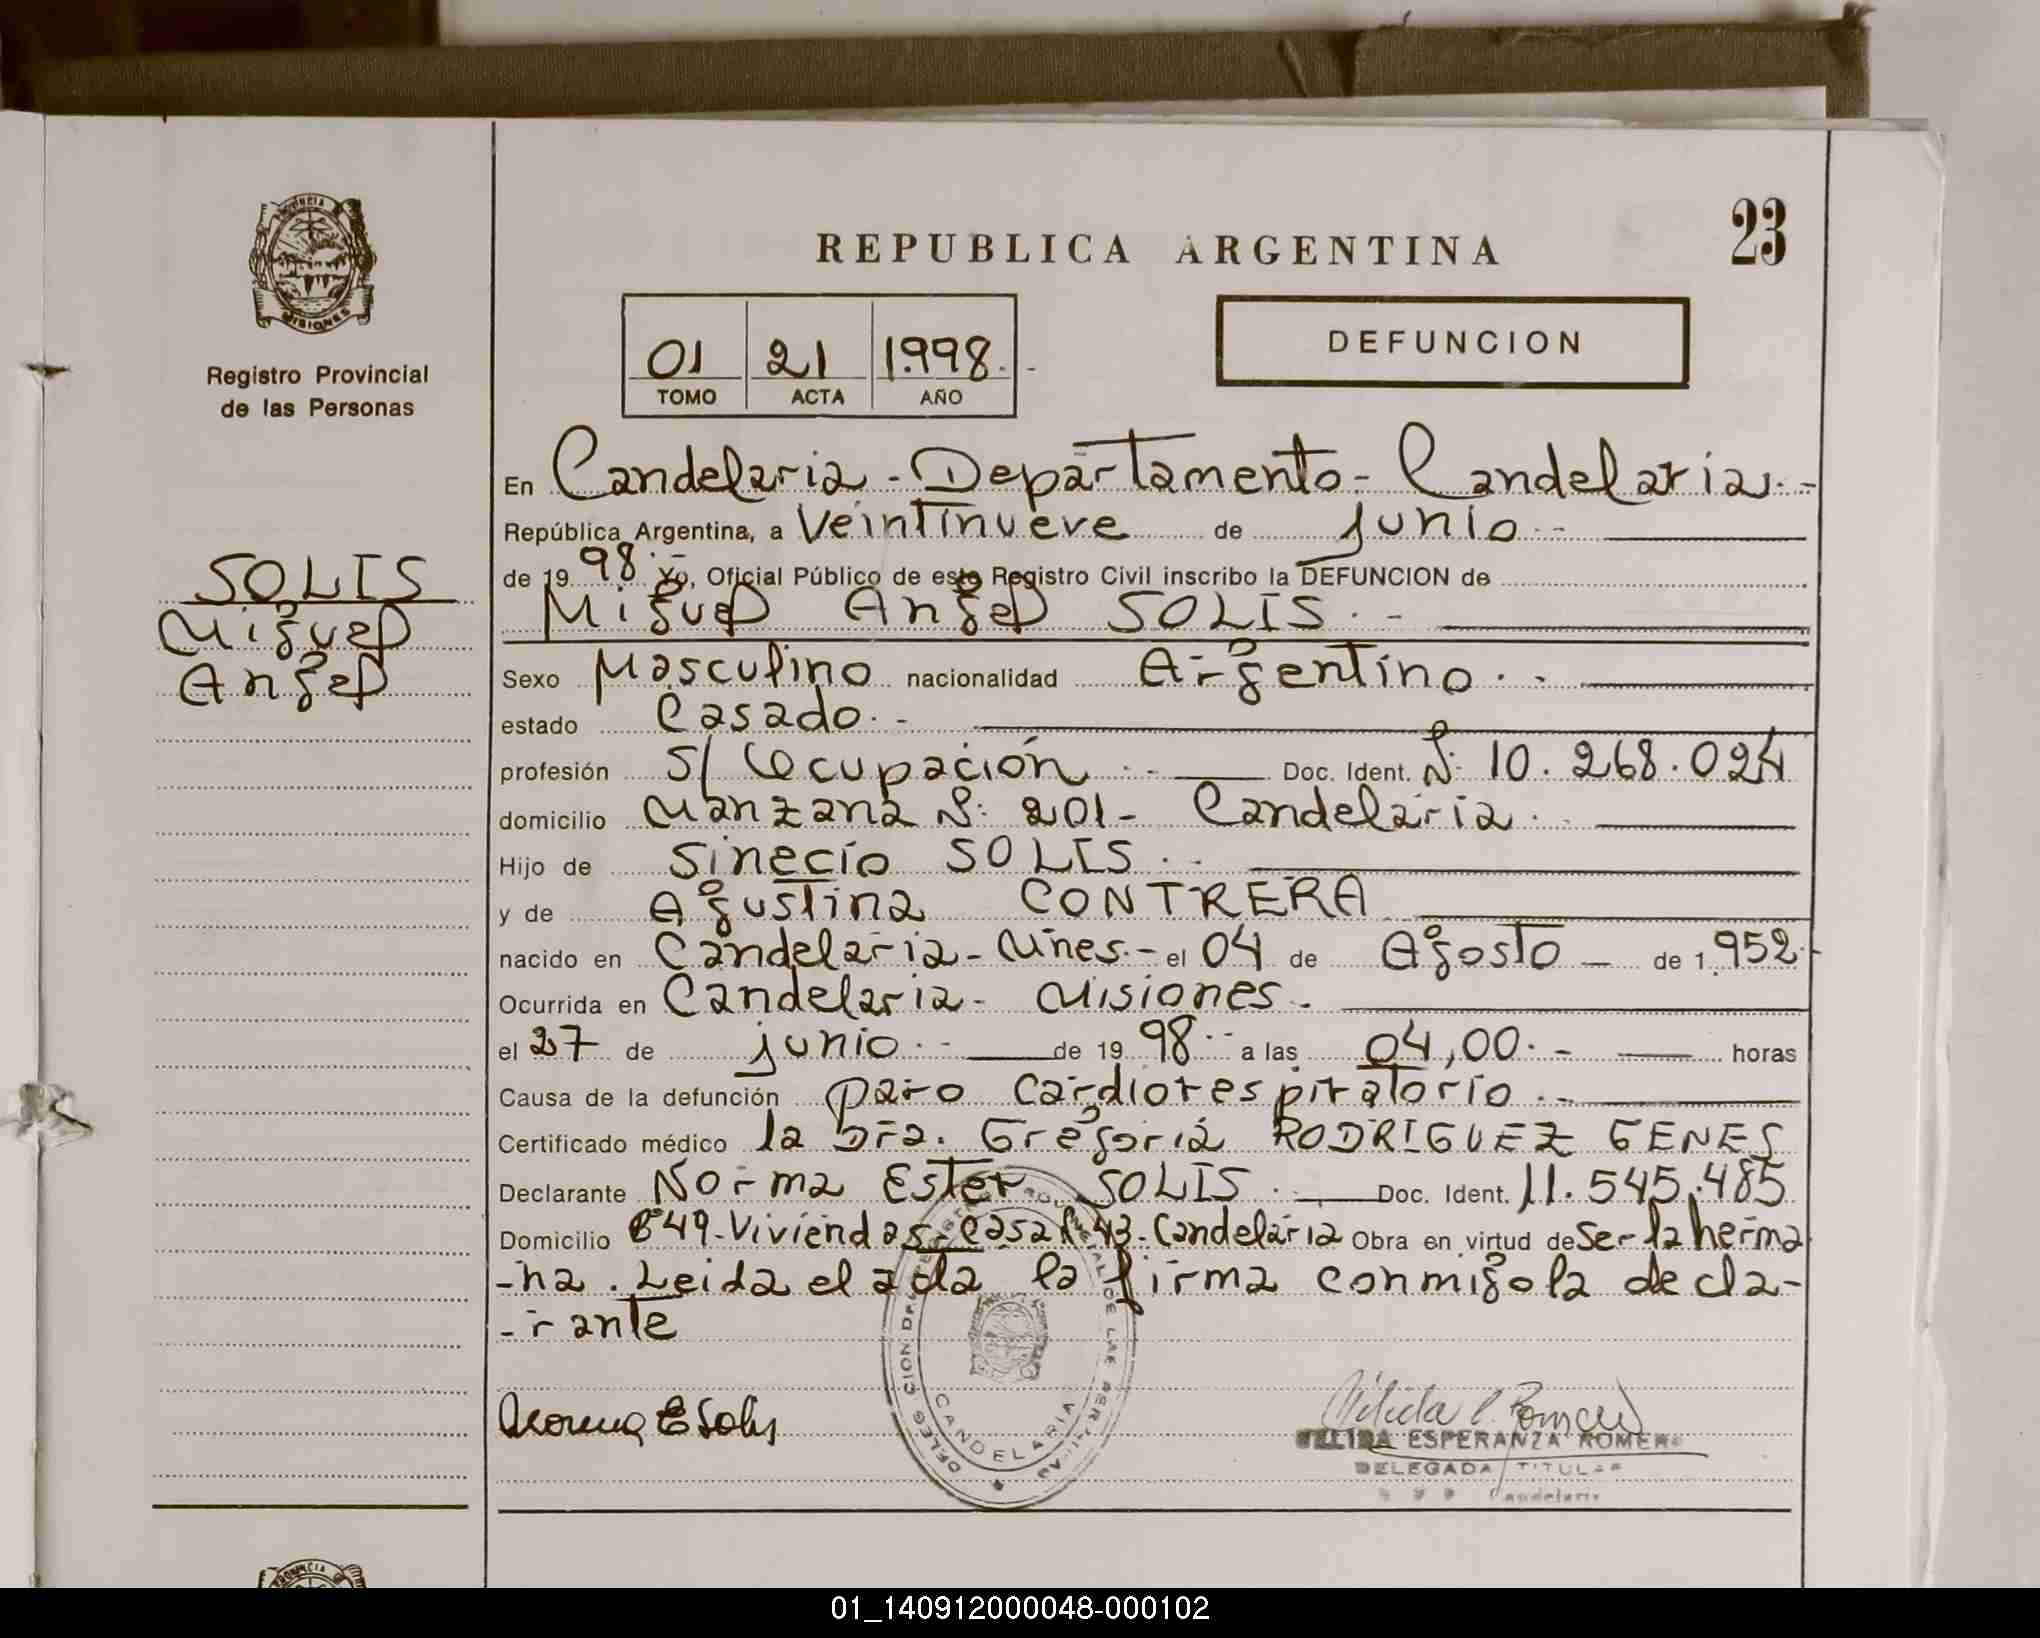 PROVINCIA DE
MISIONES
Registro Provincial
de las Personas
SOLIS
Miguel
Angel
REPUBLICA ARGENTINA
23
01 21 1.998.-
TOMO ACTA AÑO
DEFUNCION
En Candelaria - Departamento - Candelaria.-
República Argentina, a Veintinueve de junio.-
de 1998.- Yo, Oficial Público de este Registro Civil inscribo la DEFUNCION de
Miguel Angel SOLIS.-
Sexo Masculino nacionalidad Argentino.-
estado Casado.-
profesión S/ Ocupación.- Doc. Ident. Nº 10.268.024
domicilio Manzana Nº 201- Candelaria.-
Hijo de Sinecio SOLIS.-
y de Agustina CONTRERA
nacido en Candelaria - Mnes.- el 04 de Agosto - de 1.952.-
Ocurrida en Candelaria - Misiones.-
el 27 de junio.- de 1998.- a las 04,00.- horas
Causa de la defunción paro cardiorespiratorio.-
Certificado médico la Dra. Gregoria RODRIGUEZ GENES
Declarante Norma Ester SOLIS.- Doc. Ident. 11.545.485
Domicilio Bº 49-Viviendas-Casa Nº 43-Candelaria Obra en virtud de ser la herma
-na. Leida el acta la firma conmigo la decla-
-rante
Norma E Solis
CANDELARIA
NELIDA ESPERANZA ROMERO
DELEGADA TITULAR
Candelaria
01_140912000048-000102